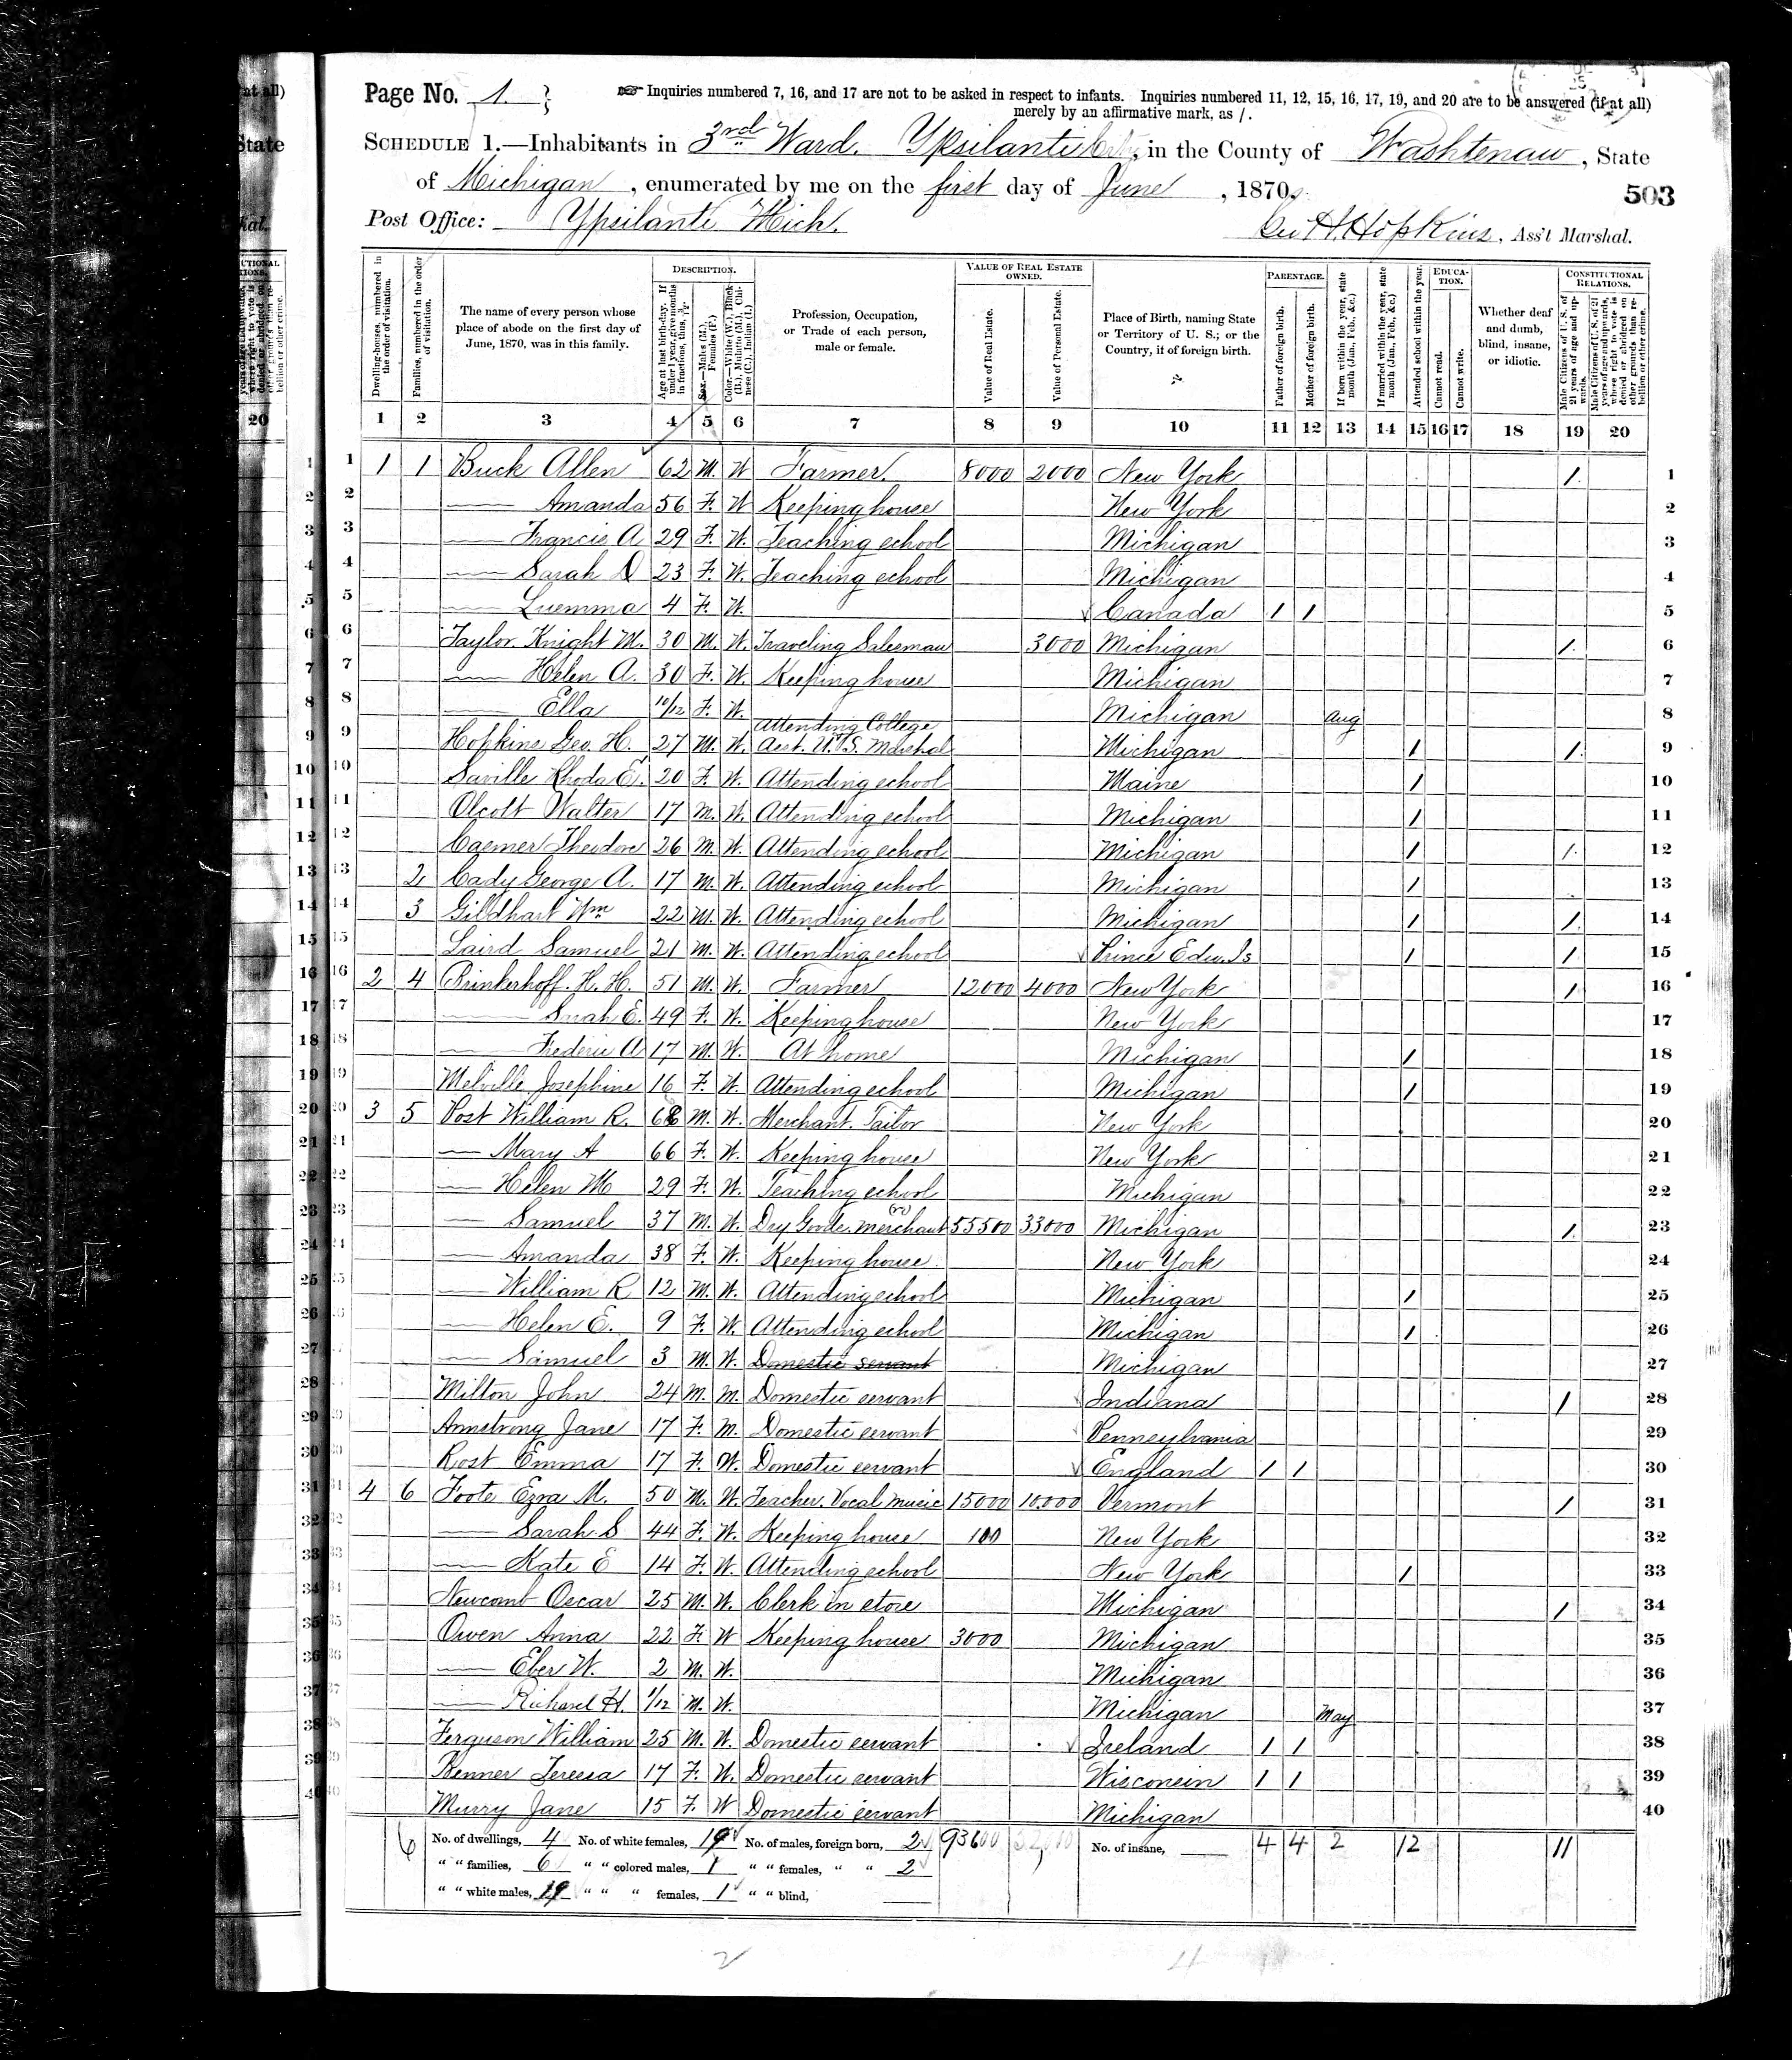 Page No. 1
Inquiries numbered 7, 16, and 17 are not to be asked in respect to infants. Inquiries numbered 11, 12, 15, 16, 17, 19, and 20 are to be answered (if at all)
merely by an affirmative mark, as /.
SCHEDULE 1.—Inhabitants in 3rd Ward. Ypsilanti City, in the County of Washtenaw, State
of Michigan, enumerated by me on the first day of June, 1870.
503
Post Office: Ypsilanti Mich.
Geo H. Hopkins, Ass't Marshal.
Dwelling-houses, numbered in the order of visitation.
Families, numbered in the order of visitation.
The name of every person whose place of abode on the first day of June, 1870, was in this family.
DESCRIPTION.
Age at last birth-day. If under 1 year, give months in fractions, thus, 3/12.
Sex.—Males (M.), Females (F.)
Color.—White (W.), Black (B.), Mulatto (M.), Chinese (C.), Indian (I.)
Profession, Occupation, or Trade of each person, male or female.
VALUE OF REAL ESTATE OWNED.
Value of Real Estate.
Value of Personal Estate.
Place of Birth, naming State or Territory of U. S.; or the Country, if of foreign birth.
PARENTAGE.
Father of foreign birth.
Mother of foreign birth.
If born within the year, state month (Jan., Feb., &c.)
If married within the year, state month (Jan., Feb., &c.)
Attended school within the year.
EDUCATION.
Cannot read.
Cannot write.
Whether deaf and dumb, blind, insane, or idiotic.
CONSTITUTIONAL RELATIONS.
Male Citizens of U. S. of 21 years of age and upwards.
Male Citizens of U. S. of 21 years of age and upwards, where right to vote is denied or abridged on other grounds than rebellion or other crime.
1 2 3 4 5 6 7 8 9 10 11 12 13 14 15 16 17 18 19 20
1 1 1 Buck Allen 62 M. W Farmer. 8000 2000 New York 1. 1
2 —— Amanda 56 F. W Keeping house New York 2
3 —— Francis A 29 F. W. Teaching school Michigan 3
4 —— Sarah D 23 F. W. Teaching school Michigan 4
5 —— Luemma 4 F. W. Canada 1 1 5
6 Taylor Knight M. 30 M. W. Traveling Salesman 3000 Michigan 1. 6
7 —— Helen A. 30 F. W. Keeping house Michigan 7
8 —— Ella 10/12 F. W. Michigan Aug 8
Attending College
9 Hopkins Geo. H. 27 M. W. Asst. U.S. Marshal Michigan 1 1. 9
10 Saville Rhoda E. 20 F. W. Attending school Maine 1 10
11 Olcott Walter 17 M. W. Attending school Michigan 1 11
12 Theodore 26 M. W. Attending school Michigan 1 1. 12
13 2 Cady George A. 17 M. W. Attending school Michigan 1 13
14 3 Gildhart Wm 22 M. W. Attending school Michigan 1 1. 14
15 Laird Samuel 21 M. W. Attending school Prince Edw. Is 1 1. 15
16 2 4 Brinkerhoff. H. H. 51 M. W. Farmer 12000 4000 New York 1 16
17 —— E. 49 F. W. Keeping house New York 17
18 —— Frederic A 17 M. W. At home Michigan 1 18
19 Melville Josephine 16 F. W. Attending school Michigan 1 19
20 3 5 Post William R. 68 M. W. Merchant. Tailor New York 20
21 —— Mary A 66 F. W. Keeping house New York 21
22 —— Helen M 29 F. W. Teaching school Michigan 22
23 —— Samuel 37 M. W. Dry Goods. merchant 55500 33000 Michigan 1. 23
24 —— Amanda 38 F. W. Keeping house New York 24
25 —— William R 12 M. W. Attending school Michigan 1 25
26 —— Helen E. 9 F. W. Attending school Michigan 1 26
27 —— Samuel 3 M. W. Domestic servant Michigan 27
28 Milton John 24 M. M. Domestic servant Indiana 1 28
29 Armstrong Jane 17 F. M. Domestic servant Pennsylvania 29
30 Rost Emma 17 F. W. Domestic servant England 1 1 30
31 4 6 Foote Ezra M. 50 M. W. Teacher. Vocal music 15000 10.000 Vermont 1 31
32 —— Sarah S 44 F. W. Keeping house 100 New York 32
33 —— Kate E 14 F. W. Attending school New York 1 33
34 Newcomb Oscar 25 M. W. Clerk in store Michigan 1 34
35 Owen Anna 22 F. W Keeping house 3000 Michigan 35
36 —— Eber W. 2 M. W. Michigan 36
37 —— Richard H. 1/12 M. W. Michigan May 37
38 Ferguson William 25 M. W. Domestic servant Ireland 1 1 38
39 Teressa 17 F. W. Domestic servant Wisconsin 1 1 39
40 Murry Jane 15 F. W Domestic servant Michigan 40
6 No. of dwellings, 4 No. of white females, 19 No. of males, foreign born, 2 93600 No. of insane, 4 4 2 12 11
" " families, 6 " " colored males, 1 " " females, " " 2
" " white males, 19 " " " females, 1 " " blind,
2 4